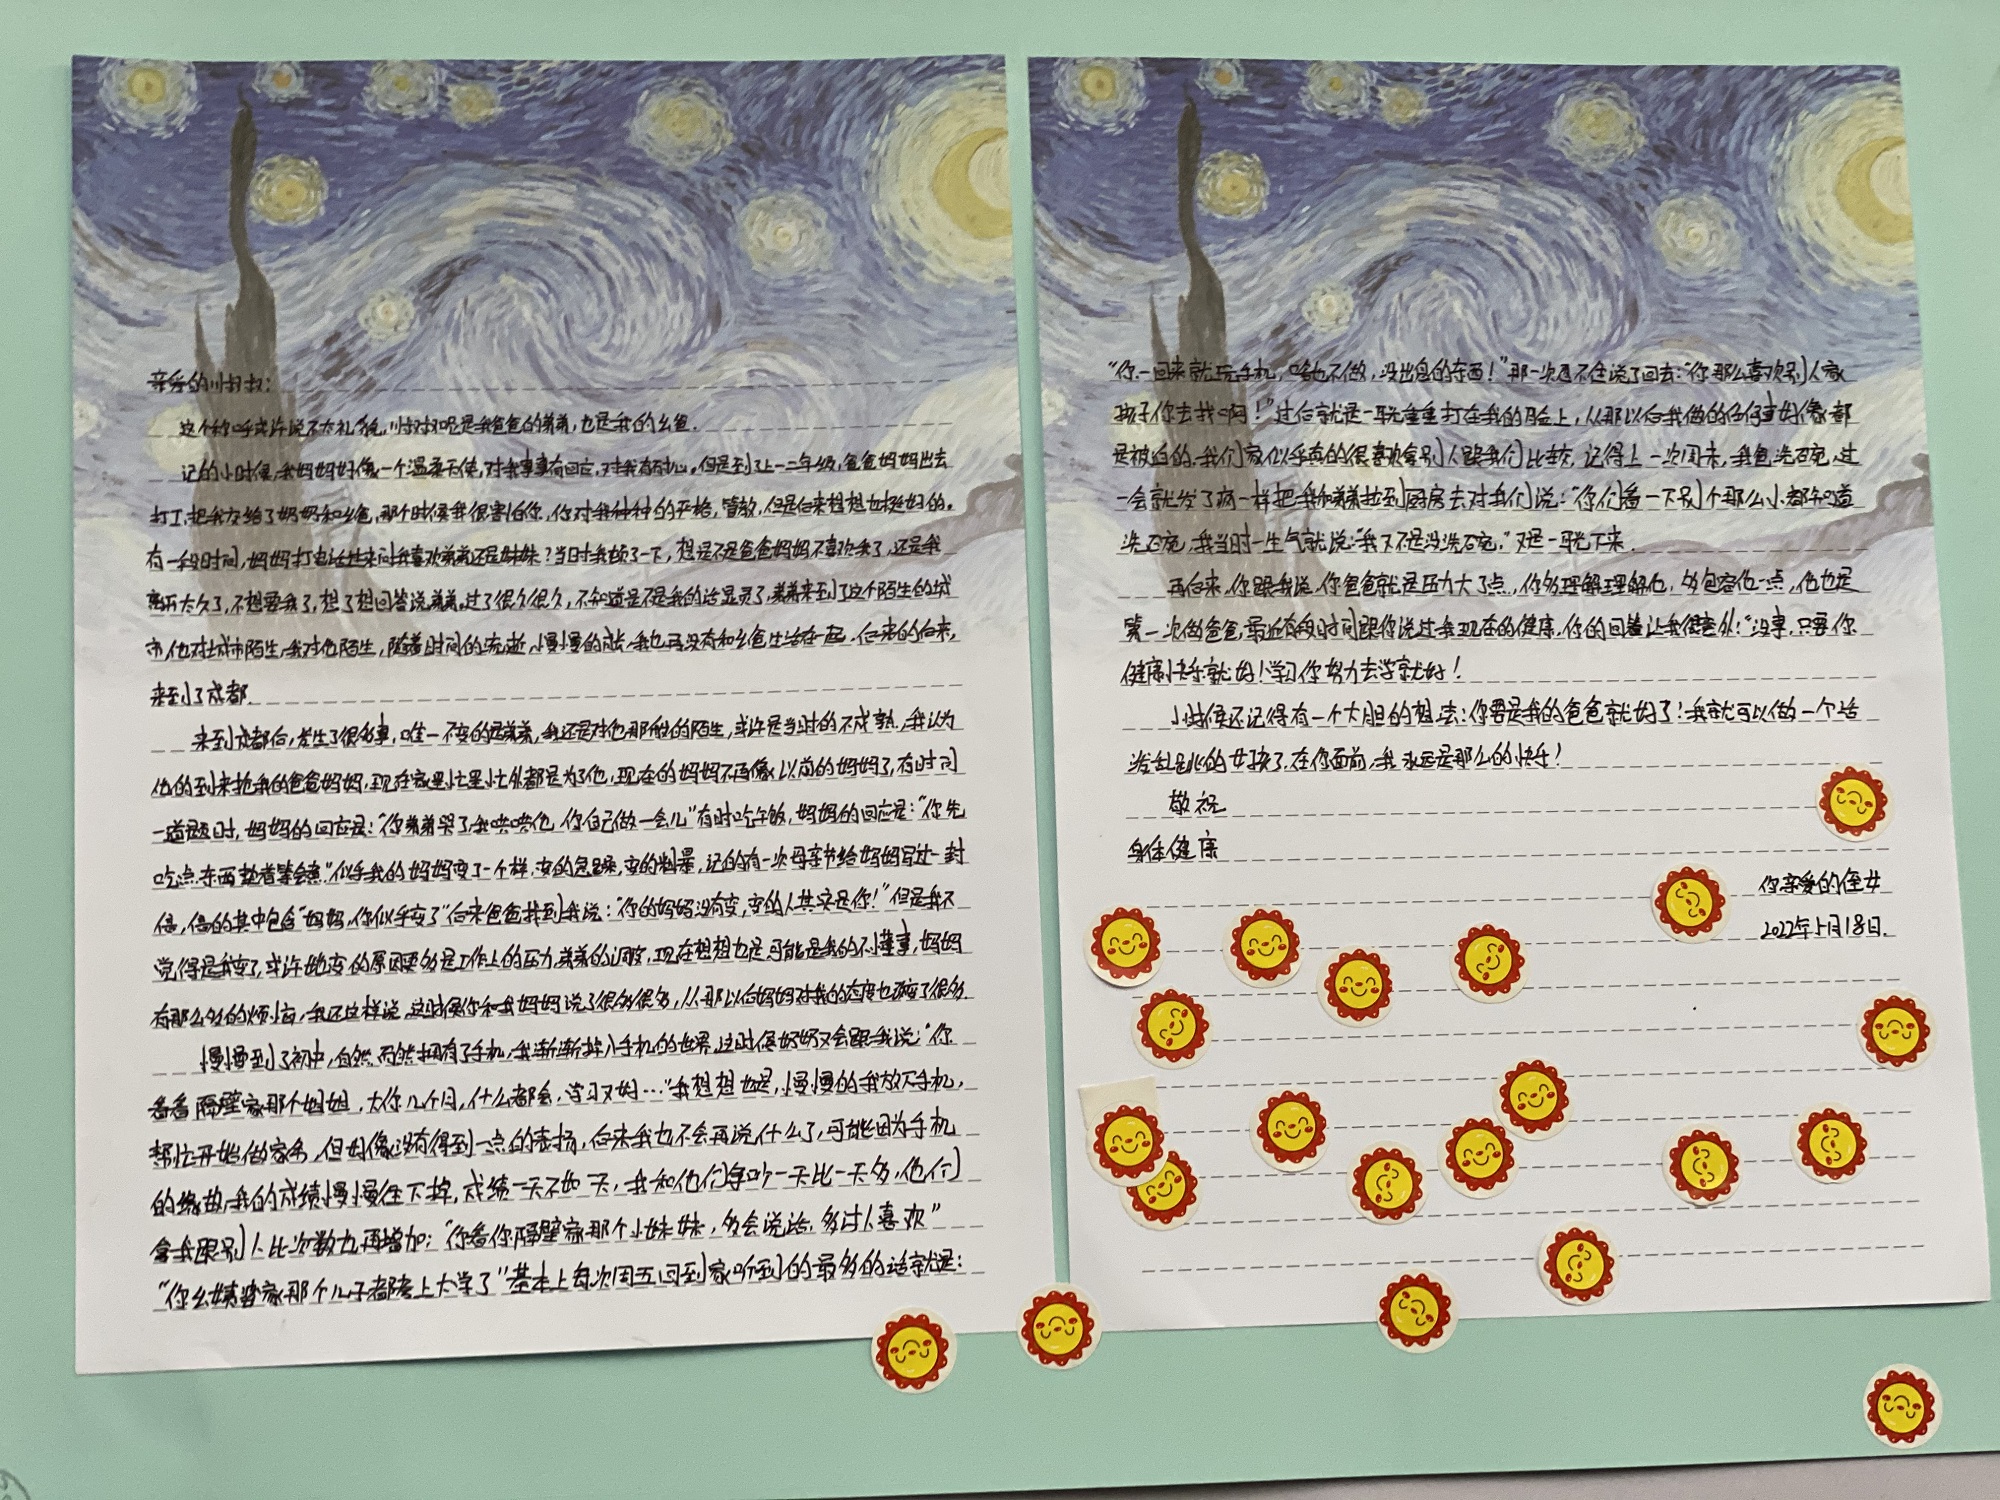 亲爱的小叔叔:
这个称呼或许说不太礼貌,小叔叔呢是我爸爸的弟弟,也是我的幺爸.
记的小时候,我妈妈好像一个温柔天使,对我事事有回应,对我有耐心。但是到了上一二年级,爸爸妈妈出去
打工,把我交给了奶奶和幺爸,那个时候我很害怕你,你对我种种的严格,管教,但是后来想想也挺好的。
有一段时间,妈妈打电话过来问我喜欢弟弟还是妹妹?当时我顿了一下,想是不是爸爸妈妈不喜欢我了,还是我
离开太久了,不想要我了,想了想回答说弟弟.过了很久很久,不知道是不是我的话显灵了,弟弟来到了这个陌生的城
市,他对城市陌生,我对他陌生,随着时间的流逝,慢慢的成长,我也再没有和幺爸生活在一起.后来的后来,
来到了成都.
来到成都后,发生了很多事,唯一不变的是弟弟,我还是对他那般的陌生,或许是当时的不成熟.我认为
他的到来抢我的爸爸妈妈,现在家里忙里忙外都是为了他,现在的妈妈不再像以前的妈妈了,有时问
一道题时,妈妈的回应是:"你弟弟哭了,我哄哄他,你自己做一会儿"有时吃午饭,妈妈的回应是:"你先
吃点东西垫着等会煮"似乎我的妈妈变了一个样,变的急躁,变的,记的有一次母亲节给妈妈写过一封
信,信的其中包含"妈妈,你似乎变了"后来爸爸找到我说:"你的妈妈没有变,变的人其实是你!"但是我不
觉得是我变了,或许她变的原因更多是工作上的压力,弟弟的调皮,现在想想也是可能是我的不懂事,妈妈
有那么多的烦恼,我还这样说.这时候你和我妈妈说了很多很多,从那以后妈妈对我的态度也改变了很多.
慢慢到了初中,自然而然拥有了手机,我渐渐掉入手机的世界,这时候奶奶又会跟我说:"你
看看隔壁家那个姐姐,大你几个月,什么都会,学习又好…"我想想也是,慢慢的我放下手机,
帮忙开始做家务,但好像没有得到一点的表扬,后来我也不会再说什么了,可能因为手机
的缘故,我的成绩慢慢往下掉,成绩一天不如一天,我和他们争吵一天比一天多,他们
拿我跟别人比次数也再增加:"你看你隔壁家那个小妹妹,多会说话,多讨人喜欢"
"你幺姨婆家那个儿子都考上大学了"基本上每次周五回到家听到的最多的话就是:
"你一回来就玩手机,啥也不做,没出息的东西!"那一次忍不住说了回去:"你那么喜欢别人家
孩子你去找啊!"过后就是一耳光重重打在我的脸上,从那以后我做的任何事好像都
是被迫的.我们家似乎真的很喜欢拿别人跟我们比较,记得上一次周末,我爸洗碗,过
一会就发了疯一样把我和弟弟拉到厨房去对我们说:"你们看一下别个那么小都知道
洗碗,我当时一生气就说:"我又不是没洗碗."又是一耳光下来.
再后来,你跟我说,你爸爸就是压力大了点,你多理解理解他,多包容他一点,他也是
第一次做爸爸,最近有段时间跟你说过我现在的健康,你的回答让我很意外:"没事,只要你
健康快乐就好!学习你努力去学就好!
小时候还记得有一个大胆的想法:你要是我的爸爸就好了!我就可以做一个话
的女孩了.在你面前,我永远是那么的快乐!
敬祝
身体健康
你亲爱的侄女
2022年5月18日.